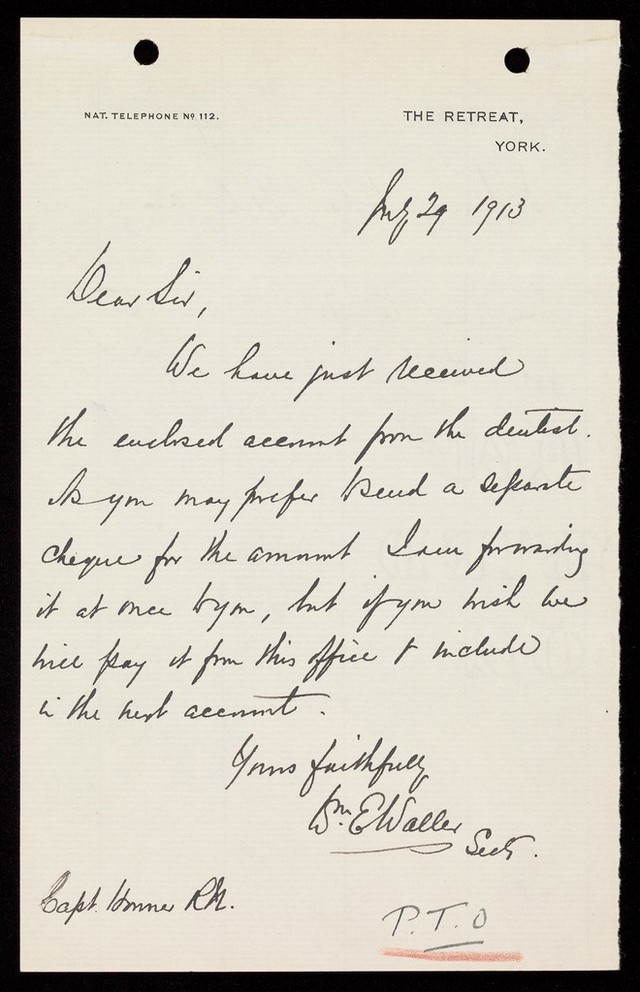 NAT. TELEPHONE Nº 112.
THE RETREAT,
YORK.
July 29 1913
Dear Sir,
We have just received
the enclosed account from the dentist.
As you may prefer to send a separate
cheque for the amount I am forwarding
it at once to you, but if you wish we
will pay it from this office & include
in the next account.
Yours faithfully
Wm. E Waller
Secty.
Capt. Honner R.N.
P.T.O